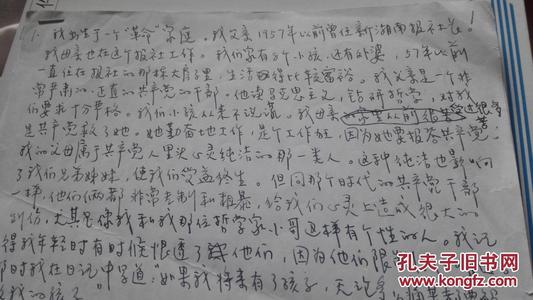 1. 我出生于一个“革命”家庭。我父亲1957年以前曾任新湖南报社社长。
我母亲也在这个报社工作。我们家有8个小孩，还有外婆，57年以前
一直住在报社的那栋大房子里，生活过得比较富裕。我父亲是一个非
常严肃的、正直的共产党的干部。他读马克思主义，钻研哲学，对我
们要求十分严格。我们小孩从来不说谎。我母亲
是共产党救了她。她勤奋地工作，是个工作狂，因为她要报答共产党。
我的父母属于共产党人里头心灵纯洁的那一类人。这种纯洁也影响
了我们兄弟姊妹，使我们受益终生。但同那个时代的共产党干部
一样，他们俩都非常专制和粗暴，给我们心灵上造成很大的
创伤，尤其是像我和我那位哲学家小哥这样有个性的人。我记
得我年轻时有时候恨透了他们，因为他们限
那时我在日记中写道：“如果我将来有了孩子，无论
我的孩子
孔夫子旧书网